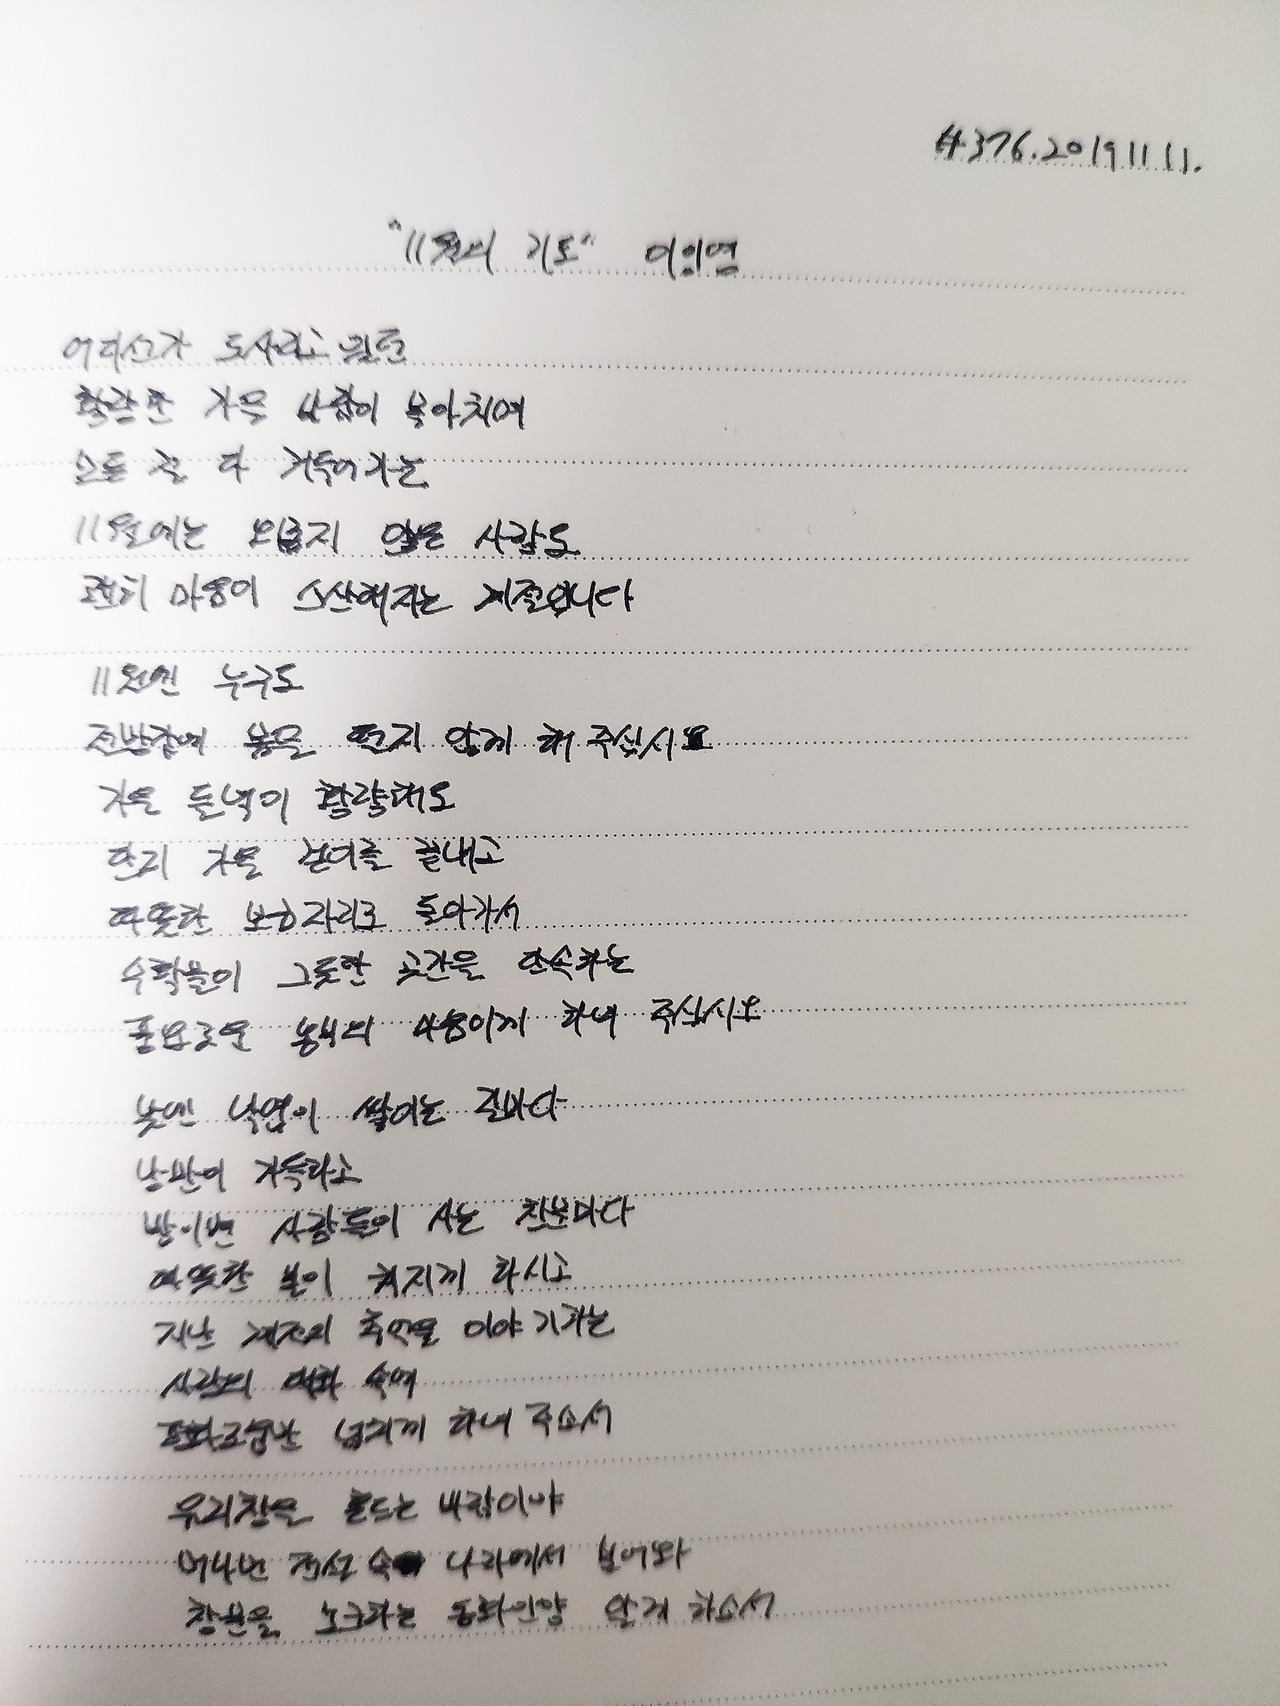 #376.20191111.
"11월의 기도" 이임영
어디선가 도사리고 있던
황량한 가을 바람이 몰아치며
모든 걸 다 거두어가는
11월에는 외롭지 않은 사람도
괜히 마음이 스산해지는 계절입니다
11월엔 누구도
절망감에 몸을 떨지 않게 해 주십시오
가을 들녘이 황량해도
단지 가을 걷이를 끝내고
따뜻한 보금자리로 돌아가서
수확물이 그득한 곳간을 단속하는
풍요로운 농부의 마음이게 하여 주십시오
낮엔 낙엽이 쌓이는 길마다
낭만이 가득하고
밤이면 사람들이 사는 창문마다
따뜻한 불이 켜지게 하시고
지난 계절의 추억을 이야기하는
사랑의 대화 속에
평화로움만 넘치게 하여 주소서
유리창을 흔드는 바람이야
머나먼 전설 속 나라에서 불어와
창문을 노크하는 동화인양 알게 하소서